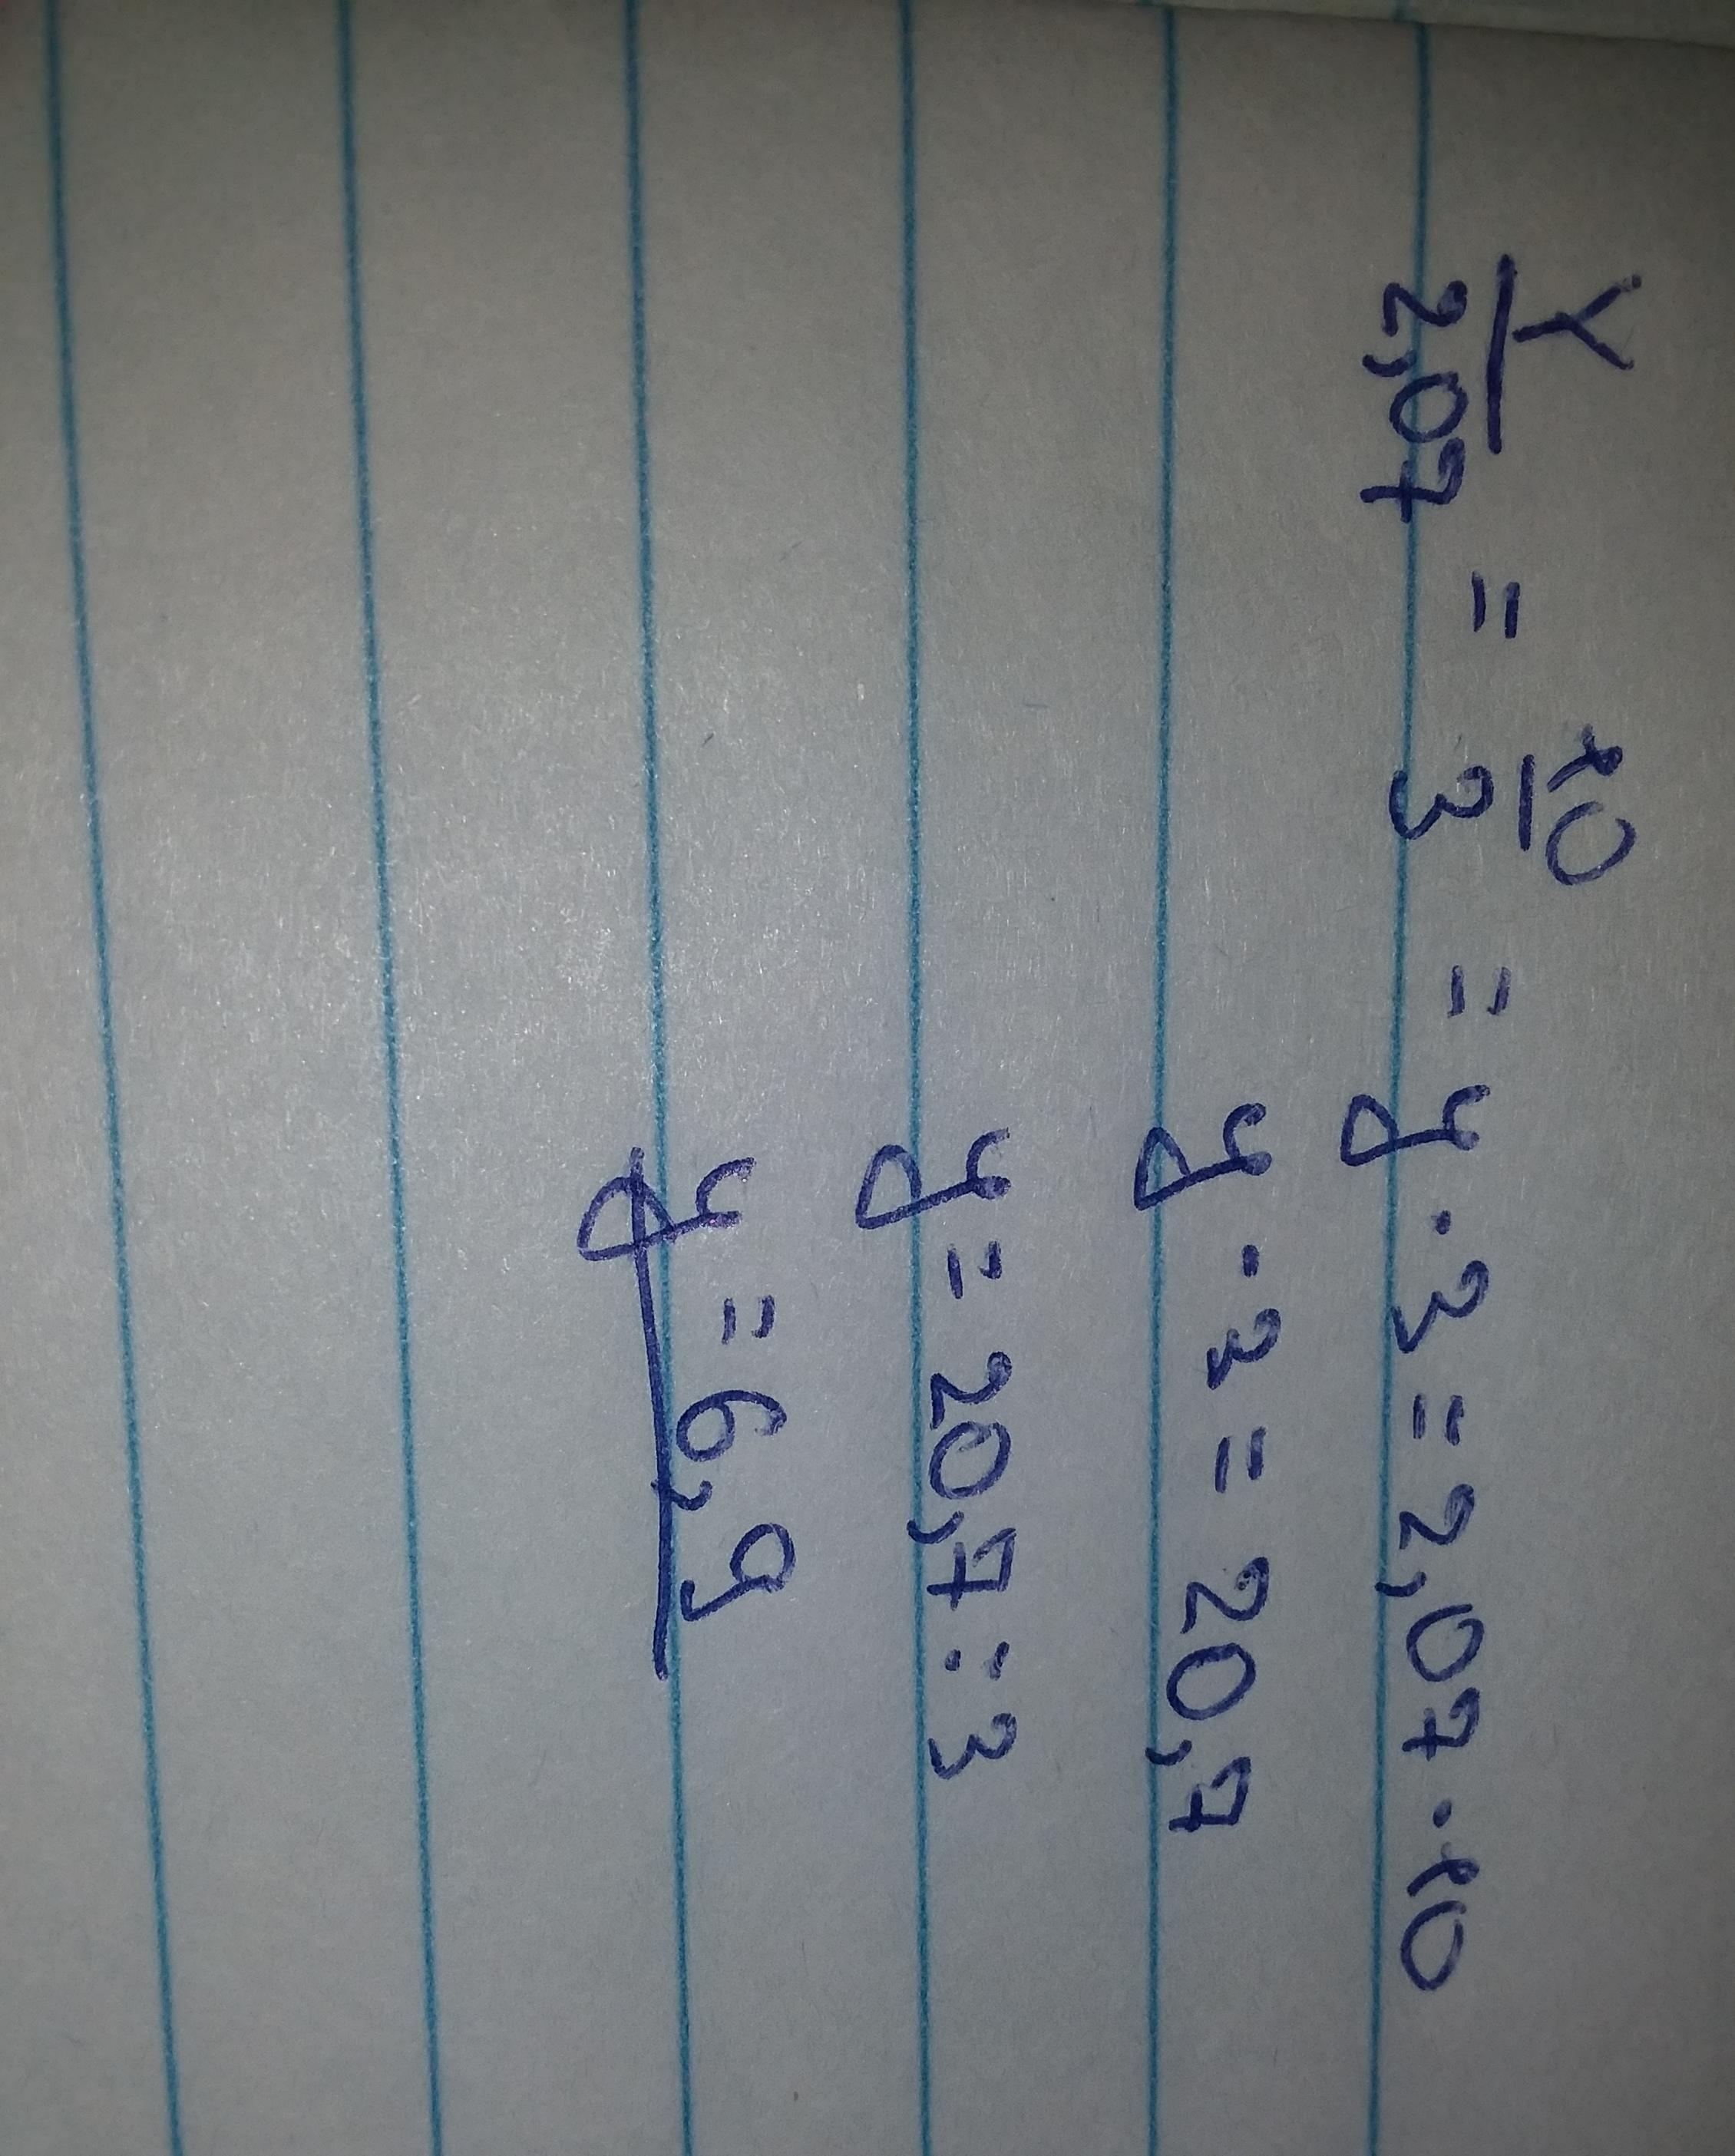 Y/2,07 = 10/3 = y · 3 = 2,07 · 10
y · 3 = 20,7
y = 20,7 : 3
y = 6,9